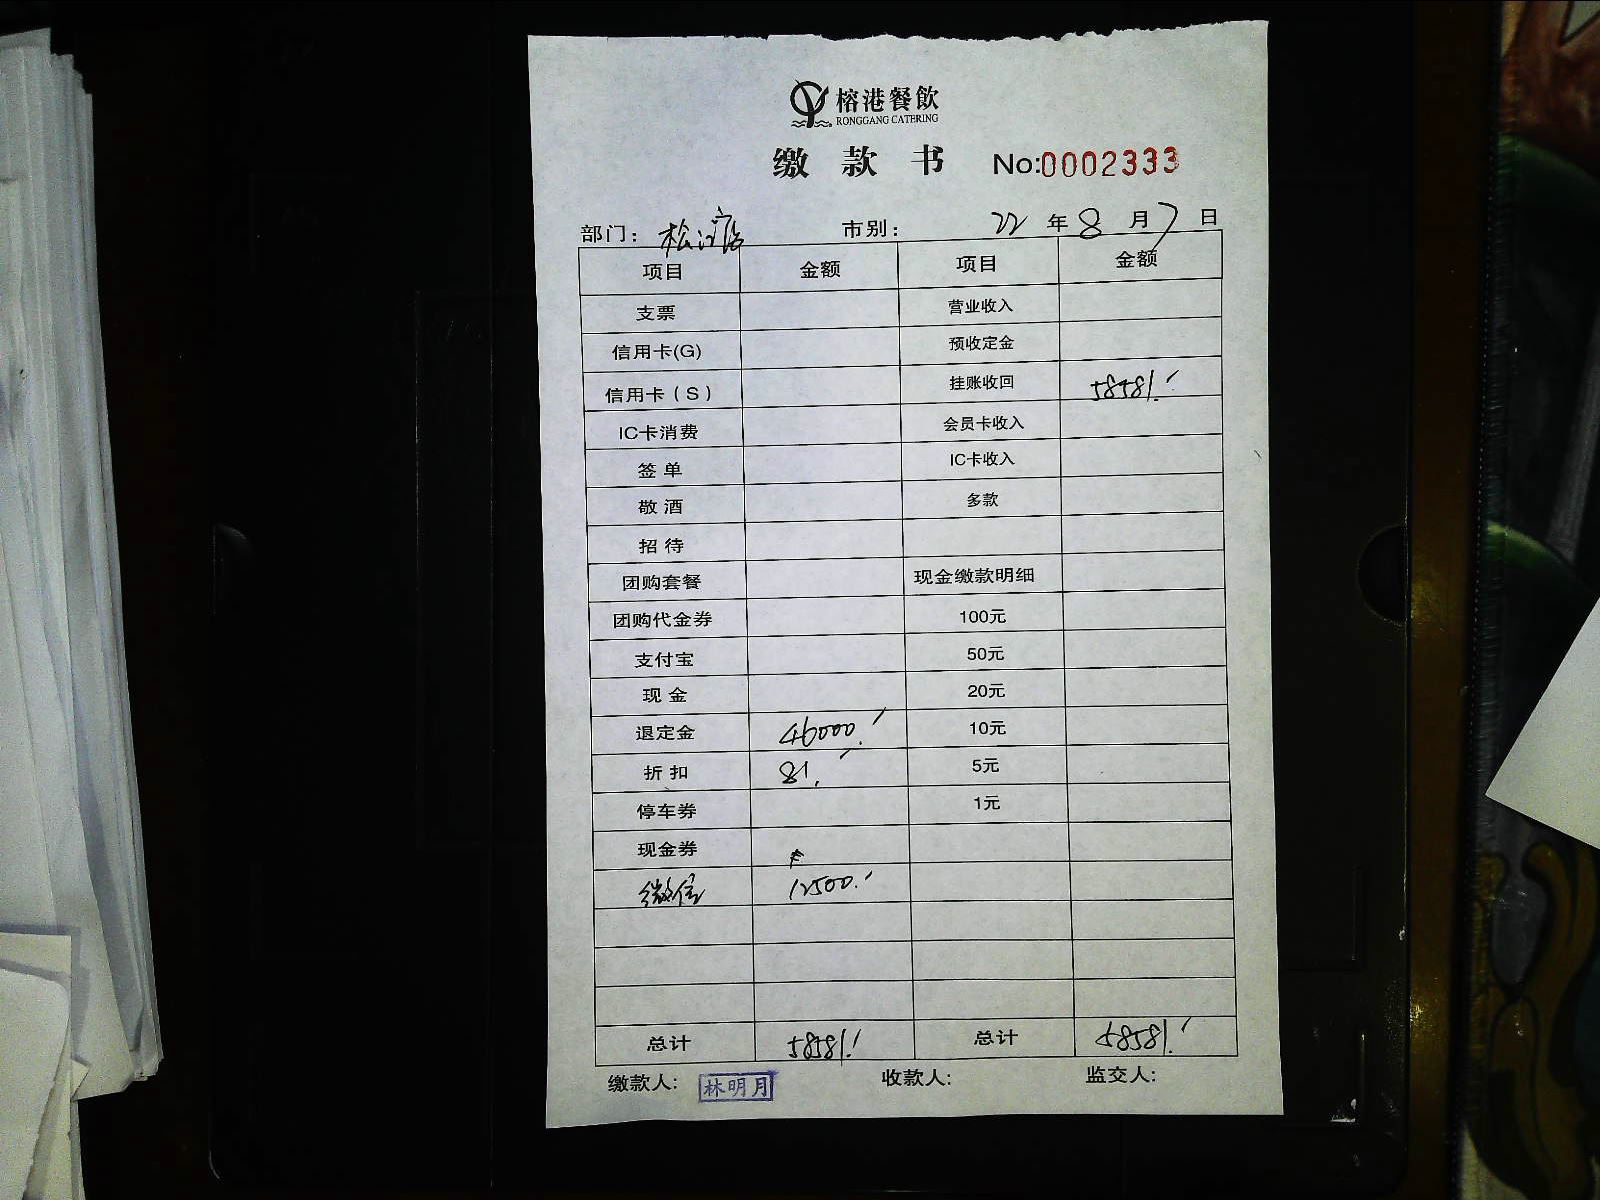 榕港餐飲
RONGGANG CATERING
缴 款 书 No:0002333
部门: 松江店 市别: 22 年 8 月 7 日
项目 金额 项目 金额
支票 营业收入
信用卡(G) 预收定金
信用卡(S) 挂账收回 58581.
IC卡消费 会员卡收入
签单 IC卡收入
敬酒 多款
招待
团购套餐 现金缴款明细
团购代金券 100元
支付宝 50元
现金 20元
退定金 46000. 10元
折扣 81. 5元
停车券 1元
现金券
微信 12500.
总计 58581. 总计 58581.
缴款人: 林明月 收款人: 监交人: